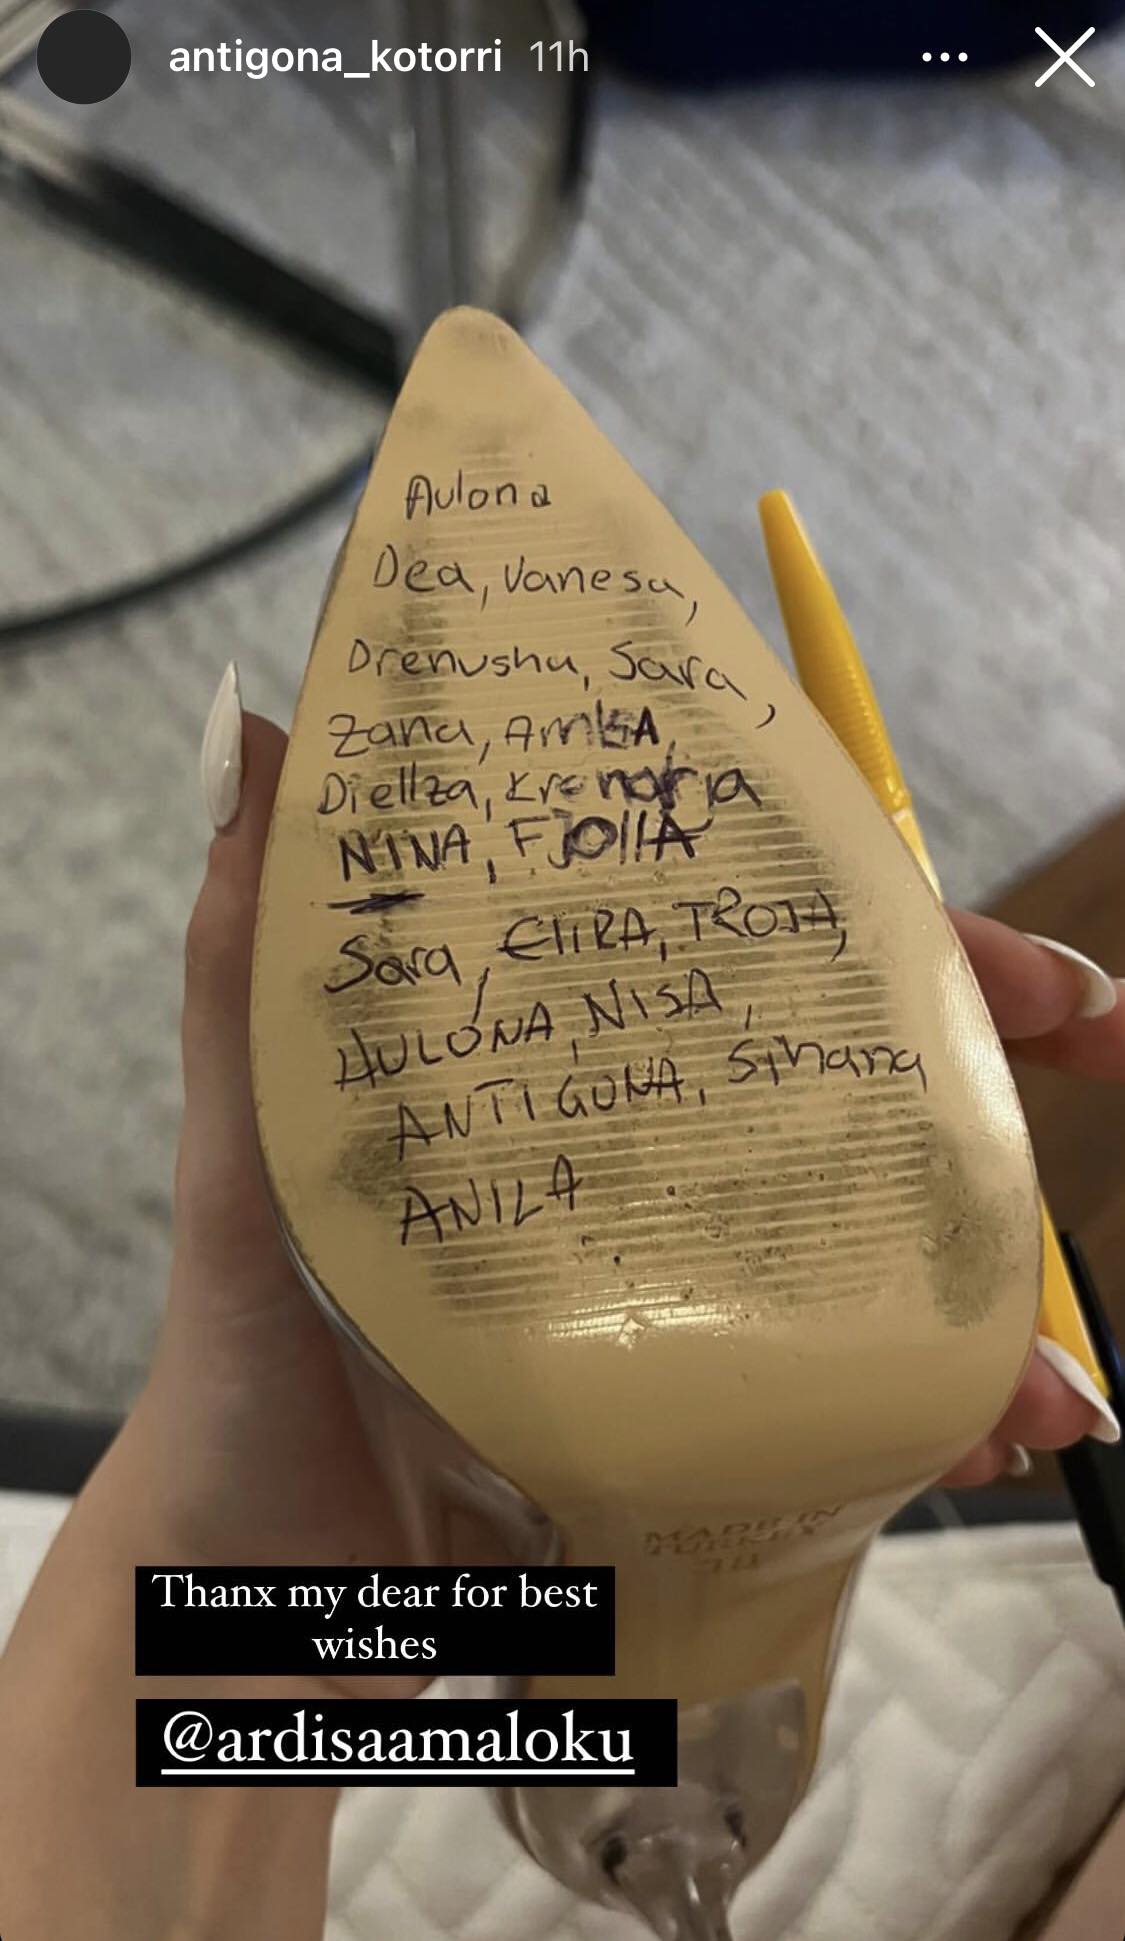 antigona_kotorri 11h
Aulona
Dea, Vanesa,
Drenusha, Sara,
Zana,
Diellza,
NINA, FJOllA
Sara, ElIRA, TROJA,
AULONA, NISA,
ANTIGONA, Sihana
ANILA
MADE IN
TURKEY
Thanx my dear for best
wishes
@ardisaamaloku